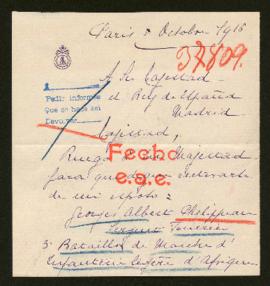 Paris 8 Octobre 1916
37809.
A Su Majestad
el Rey de España
Madrid
Pedir informes
Que se hace así
Devolver
Majestad,
Fecho
e.g.c.
Ruego a su Majestad
para que
de mi esposo:
Georges Albert Philippeau
Sergent
3e Bataillon de Marche d'
Infanterie Légère d'Afrique